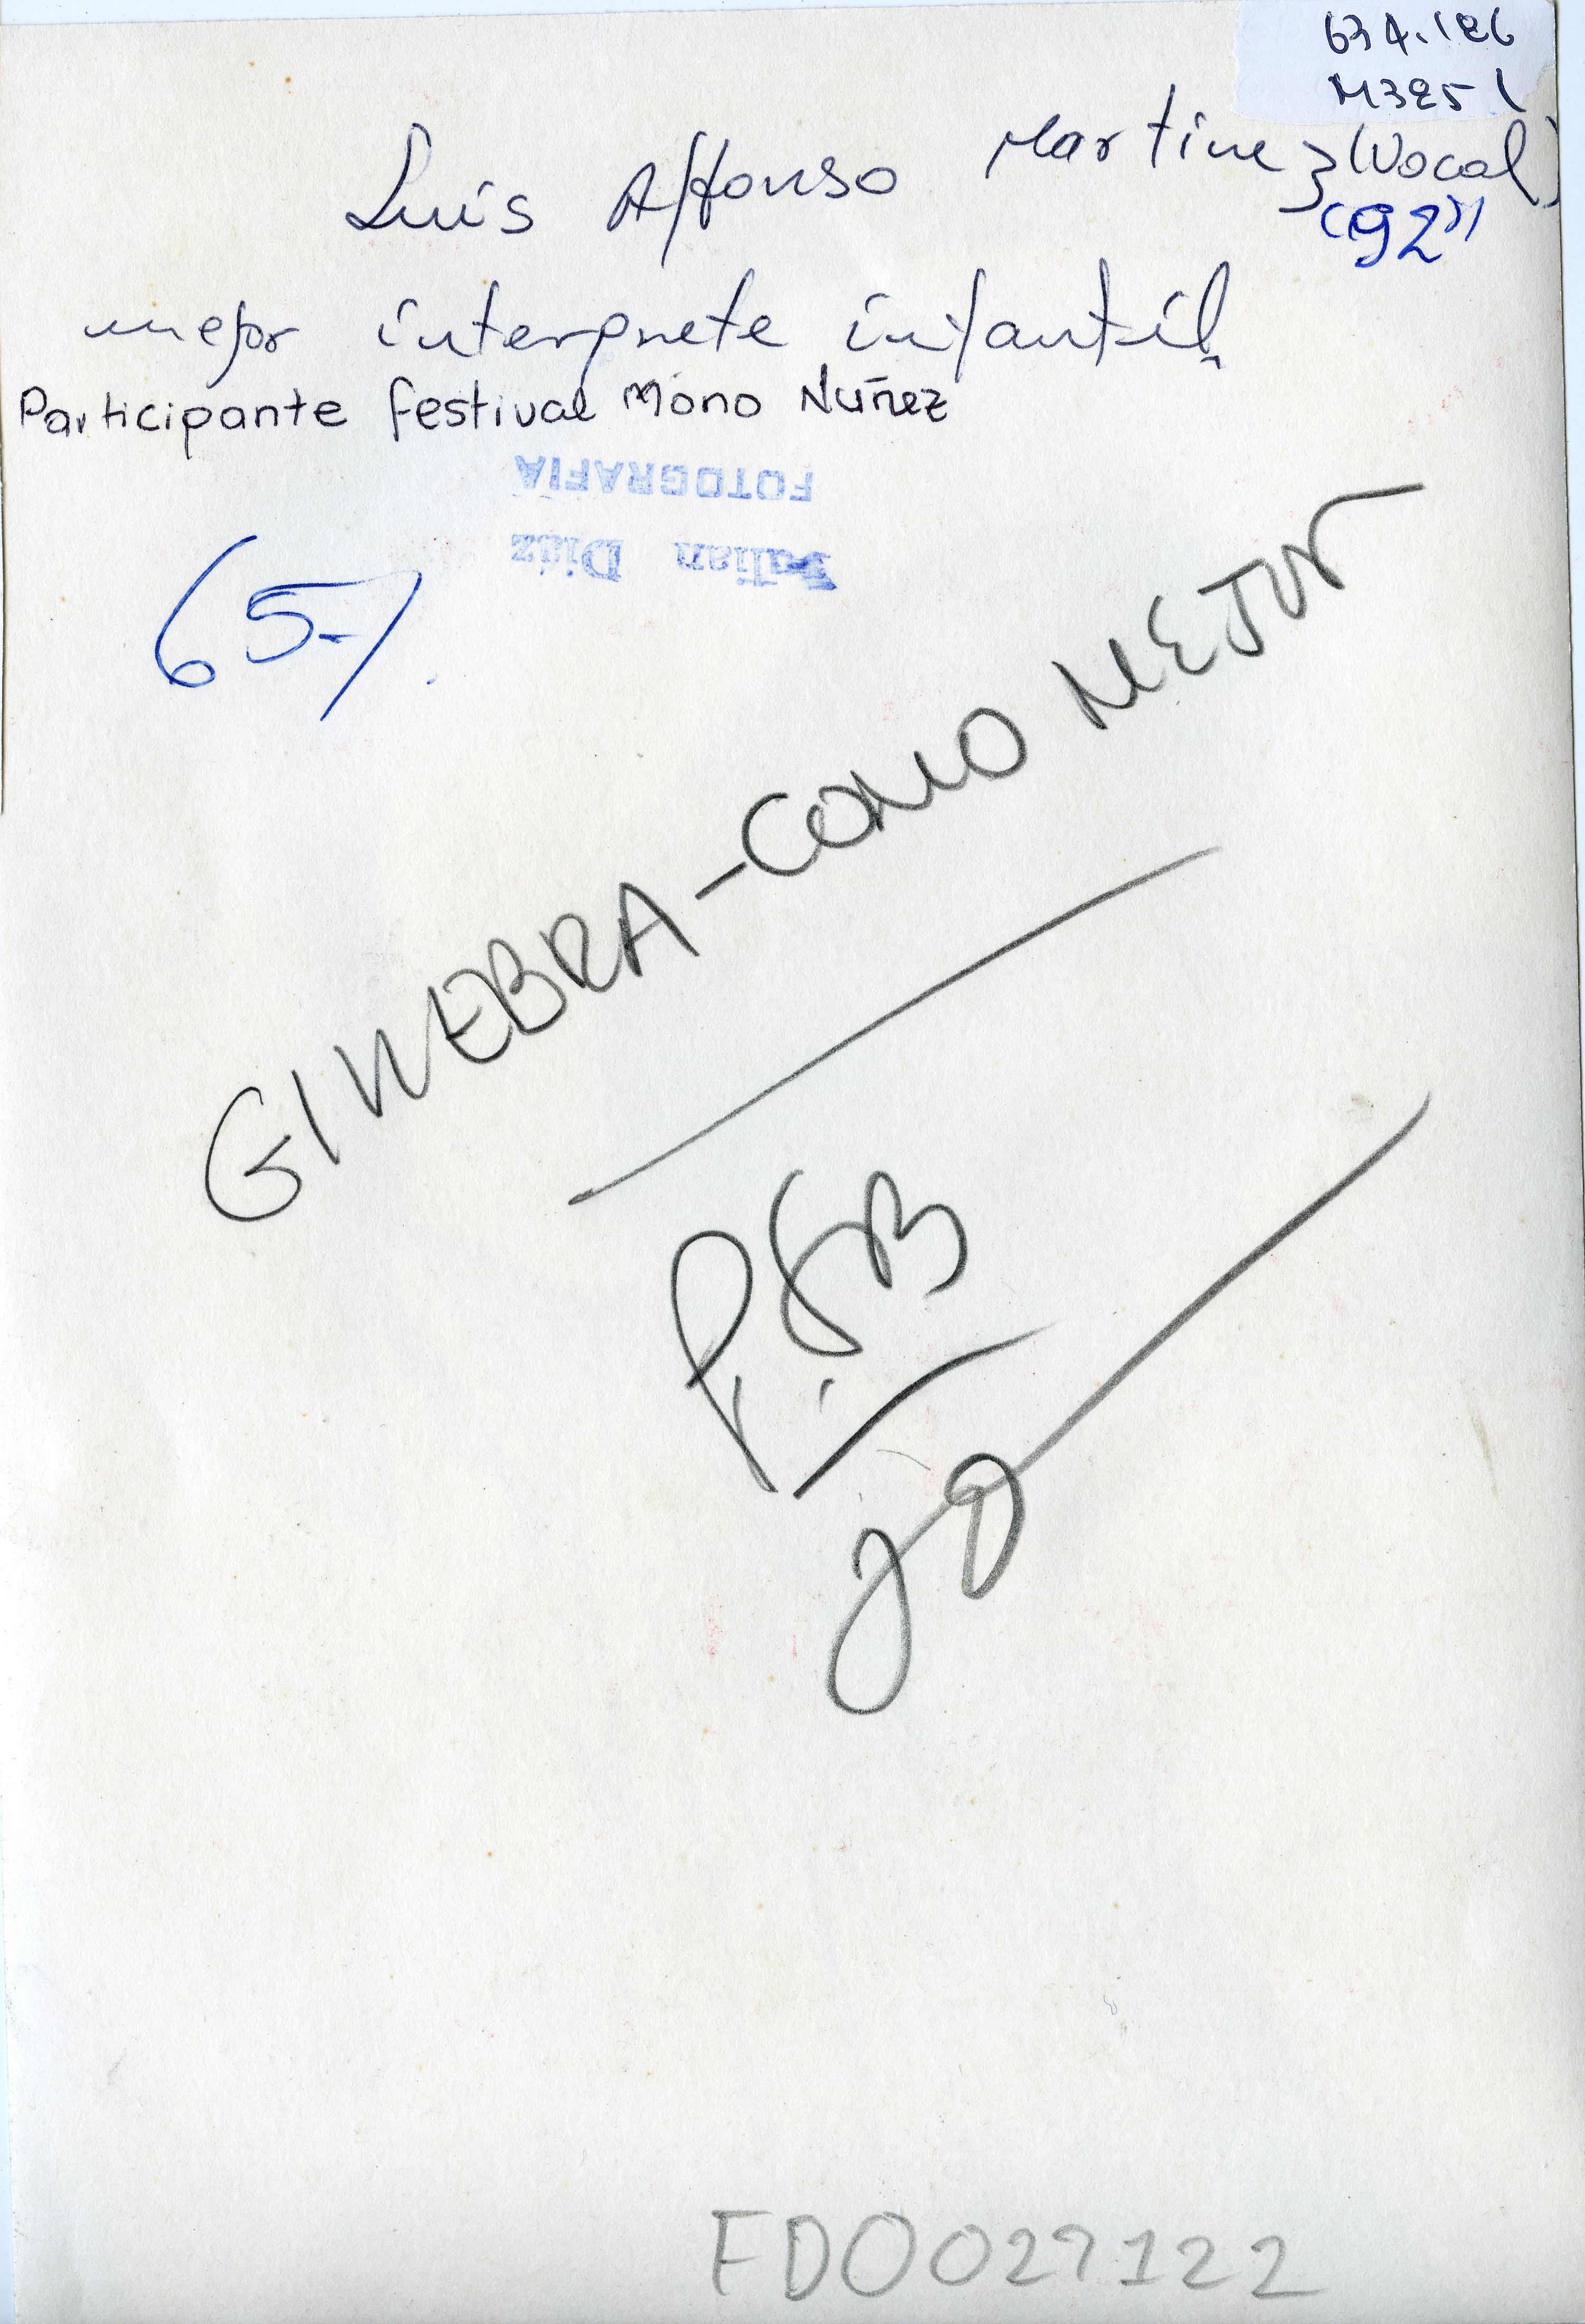 634.186
M385 l
Luis Alfonso Martinez (Vocal)
(92")
mejor interprete infantil
Participante festival Mono Núñez
FOTOGRAFIA
Julian Diaz
65-/.
GINEBRA-COMO MEJOR
FD0027122